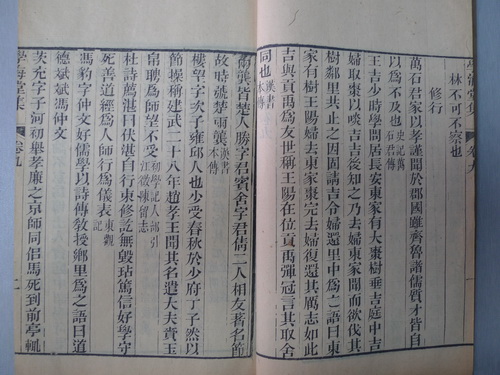 林不可不察也
修行
萬石君家以孝謹聞於郡國雖齊魯諸儒質行皆自
以為不及也史記萬石君傳
王吉少時學問居長安東家有大棗樹垂吉庭中吉
婦取棗以啖吉吉後知之乃去婦東家聞而欲伐其
樹鄰里共止之因固請吉令還婦里中為之語曰東
家有樹王陽婦去東家棗完去婦復還其厲志如此
吉與貢禹為友世稱王陽在位貢禹彈冠言其取舍
同也漢書本傳
兩龔皆楚人勝字君賓舍字君倩二人相友著名節
故時號楚兩龔漢書本傳
樓望字次子雍邱人也少受春秋於少府丁子然以
節操稱建武二十八年趙孝王聞其名遣大夫賫玉
帛聘為師望不受初學記人部引江微陳留志
杜詩薦湛曰伏湛自行束修訖無毀玷篤信好學守
死善道經為人師行為儀表東觀記
馮豹字仲文好儒學以詩傳教授鄉里為之語曰道
德斌斌馮仲文
茨充字子河初舉孝廉之京師同侶馬死到前亭輒